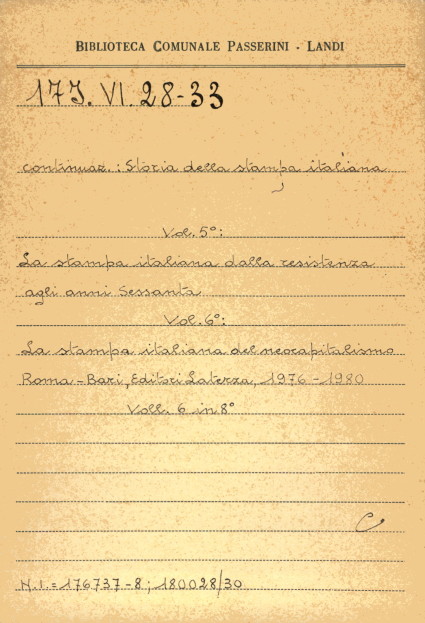 BIBLIOTECA COMUNALE PASSERINI - LANDI
17J. VI. 28-33
continuaz.: Storia della stampa italiana
Vol. 5º:
La stampa italiana dalla resistenza
agli anni Sessanta
Vol. 6º:
La stampa italiana del neocapitalismo
Roma-Bari, Editori Laterza, 1976-1980
Voll. 6 in 8º
C
N.I. = 176737-8; 180028/30